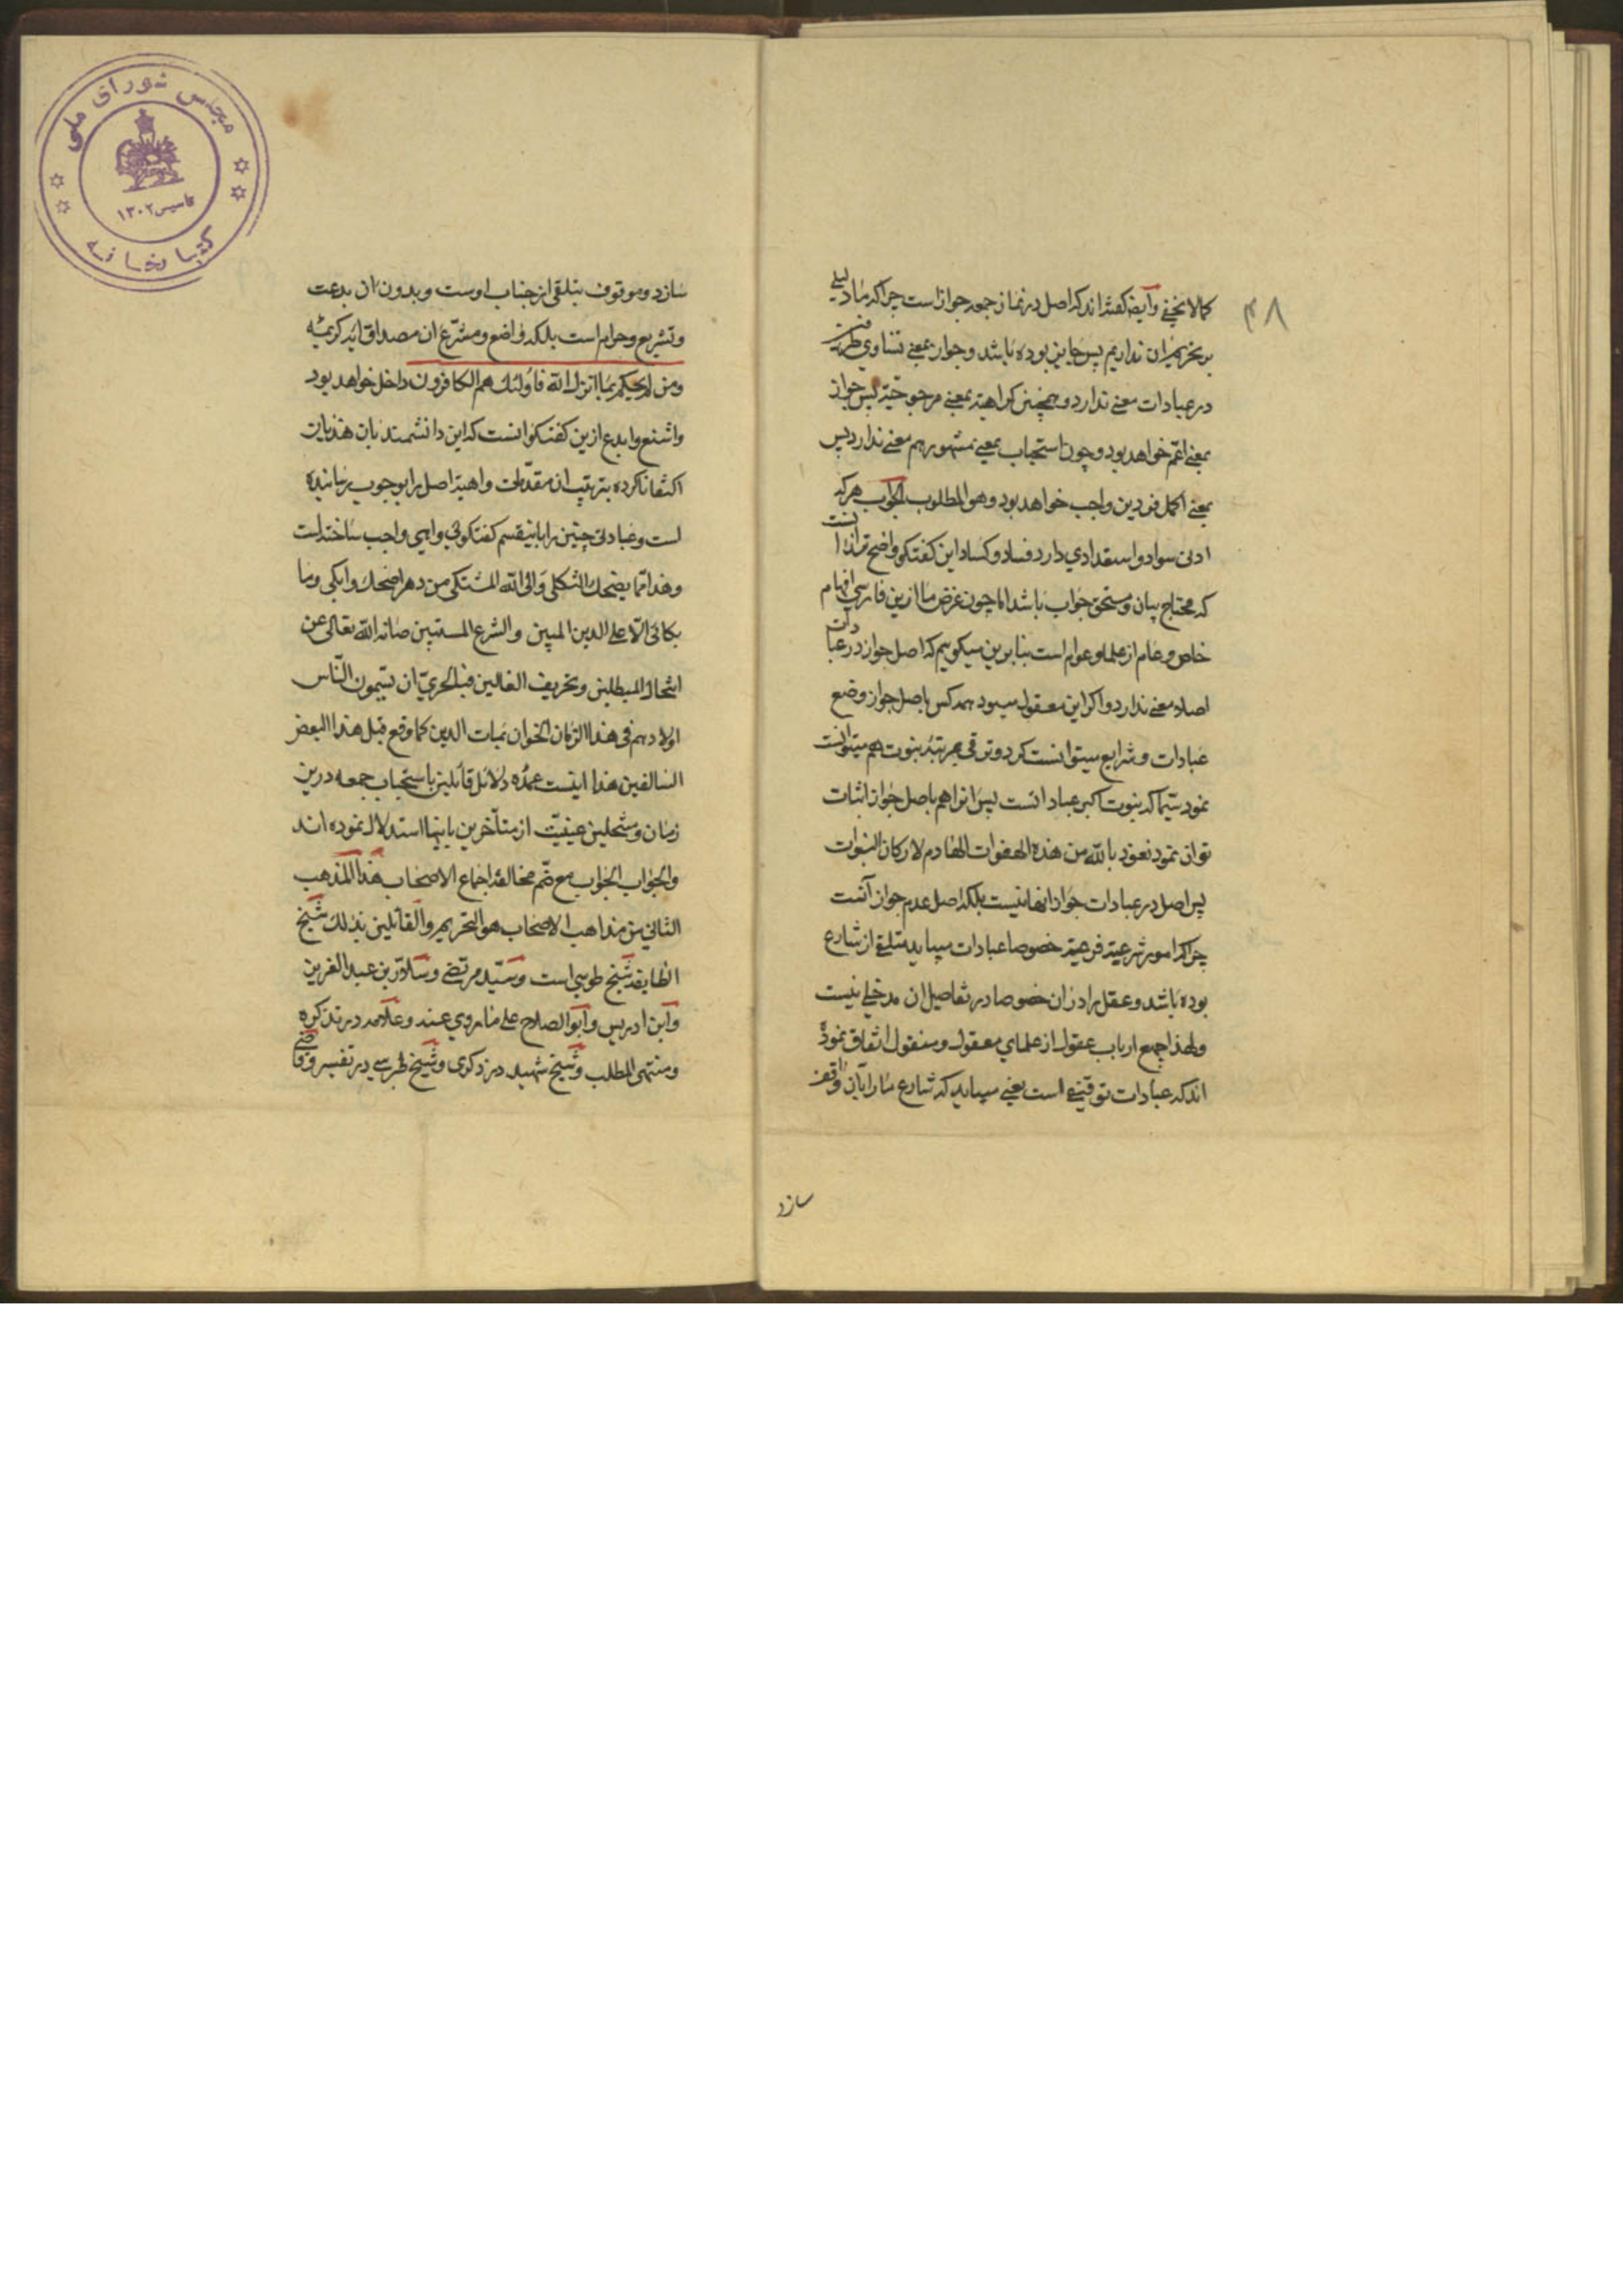 ۴۸
كمالا يخفى وايضا كفته‌اند كه اصل در نماز جمعه جواز است چرا كه ما دليلى
بر تحريم ان نداريم پس جايز بوده باشد و جواز بمعنى تساوى طرفين
در عبادات معنى ندارد و همچنين كراهت بمعنى مرجوحيّت پس جواز
بمعنى اعم خواهد بود و چون استحباب بمعنى مشهور هم معنى ندارد پس
بمعنى اكمل فردين واجب خواهد بود وهو المطلوب الجواب هر كه
ادنى سواد و استعدادي دارد فساد و كساد اين كفتكو واضح‌تر از انست
كه محتاج بيان و مستحق جواب باشد اما چون غرض ما ازين فارسي افهام
خاص و عام از علما و عوام است بنابرين ميكوييم كه اصل جواز در عبادات
اصلا معنى ندارد و اكر اين معقول ميبود همه كس باصل جواز وضع
عبادات و شرايع ميتوانست كرد و ترقى بمرتبه نبوت هم ميتوانست
نمود سيّما كه نبوت اكبر عباداتست پس انرا هم باصل جواز اثبات
توان نمود نعوذ بالله من هذه الهفوات الهادم لاركان النبوات
پس اصل در عبادات جواز انها نيست بلكه اصل عدم جواز آنست
چرا كه امور شرعيّه فرعيّه خصوصا عبادات ميبايد متلقى از شارع
بوده باشد و عقل را در ان خصوصا در تفاصيل ان مدخلى نيست
ولهذا جميع ارباب عقول از علماي معقول و منقول اتفاق نموده
اند كه عبادات توقيفى است يعنى ميبايد كه شارع ما را بآن واقف
سازد
سازد و موقوف بتلقى از جناب اوست و بدون ان بدعت
و تشريع و حرام است بلكه واضع و مشرّع ان مصداق آيه كريمه
ومن لم يحكم بما انزل الله فاولئك هم الكافرون داخل خواهد بود
واشنع وابدع ازين كفتكو انست كه اين دانشمند بان هذيان
اكتفا ناكرده بترتيب ان مقدمات واهيه اصل را بوجوب رسانيده
است و عبادتى چنين را باينقسم كفتكوئى واهى واجب ساخته است
وهذا مما يضحك الثكلى والى الله المشتكى من دهر اضحك وابكى وما
بكائى الّا على الدين المبين والشرع المستبين صانه الله تعالى عن
انتحال المبطلين وتحريف الغالين فبالحريّ ان تسمون النّاس
اولادهم فى هذا الزمان الخوان بمات الدين كما وقع قبل هذا لبعض
السالفين هذا اينست عمده دلائل قائلين باستحباب جمعه درين
زمان و منتحلين عينيّت از متأخرين باينها استدلال نموده اند
والجواب الجواب مع ضم مخالفة اجماع الاصحاب هذا المذهب
الثاني من مذاهب الاصحاب هو التحريم والقائلين بذلك شيخ
الطايفه شيخ طوسي است و سيّد مرتضى و سلار بن عبد العزيز
وابن ادريس وابو الصلاح على ما روي عنه وعلامه در تذكره
ومنتهى المطلب وشيخ شهيد در ذكرى وشيخ طبرسي در تفسير وقاضى
مجلس شورای ملی
تاسیس ۱۳۰۲
کتابخانه